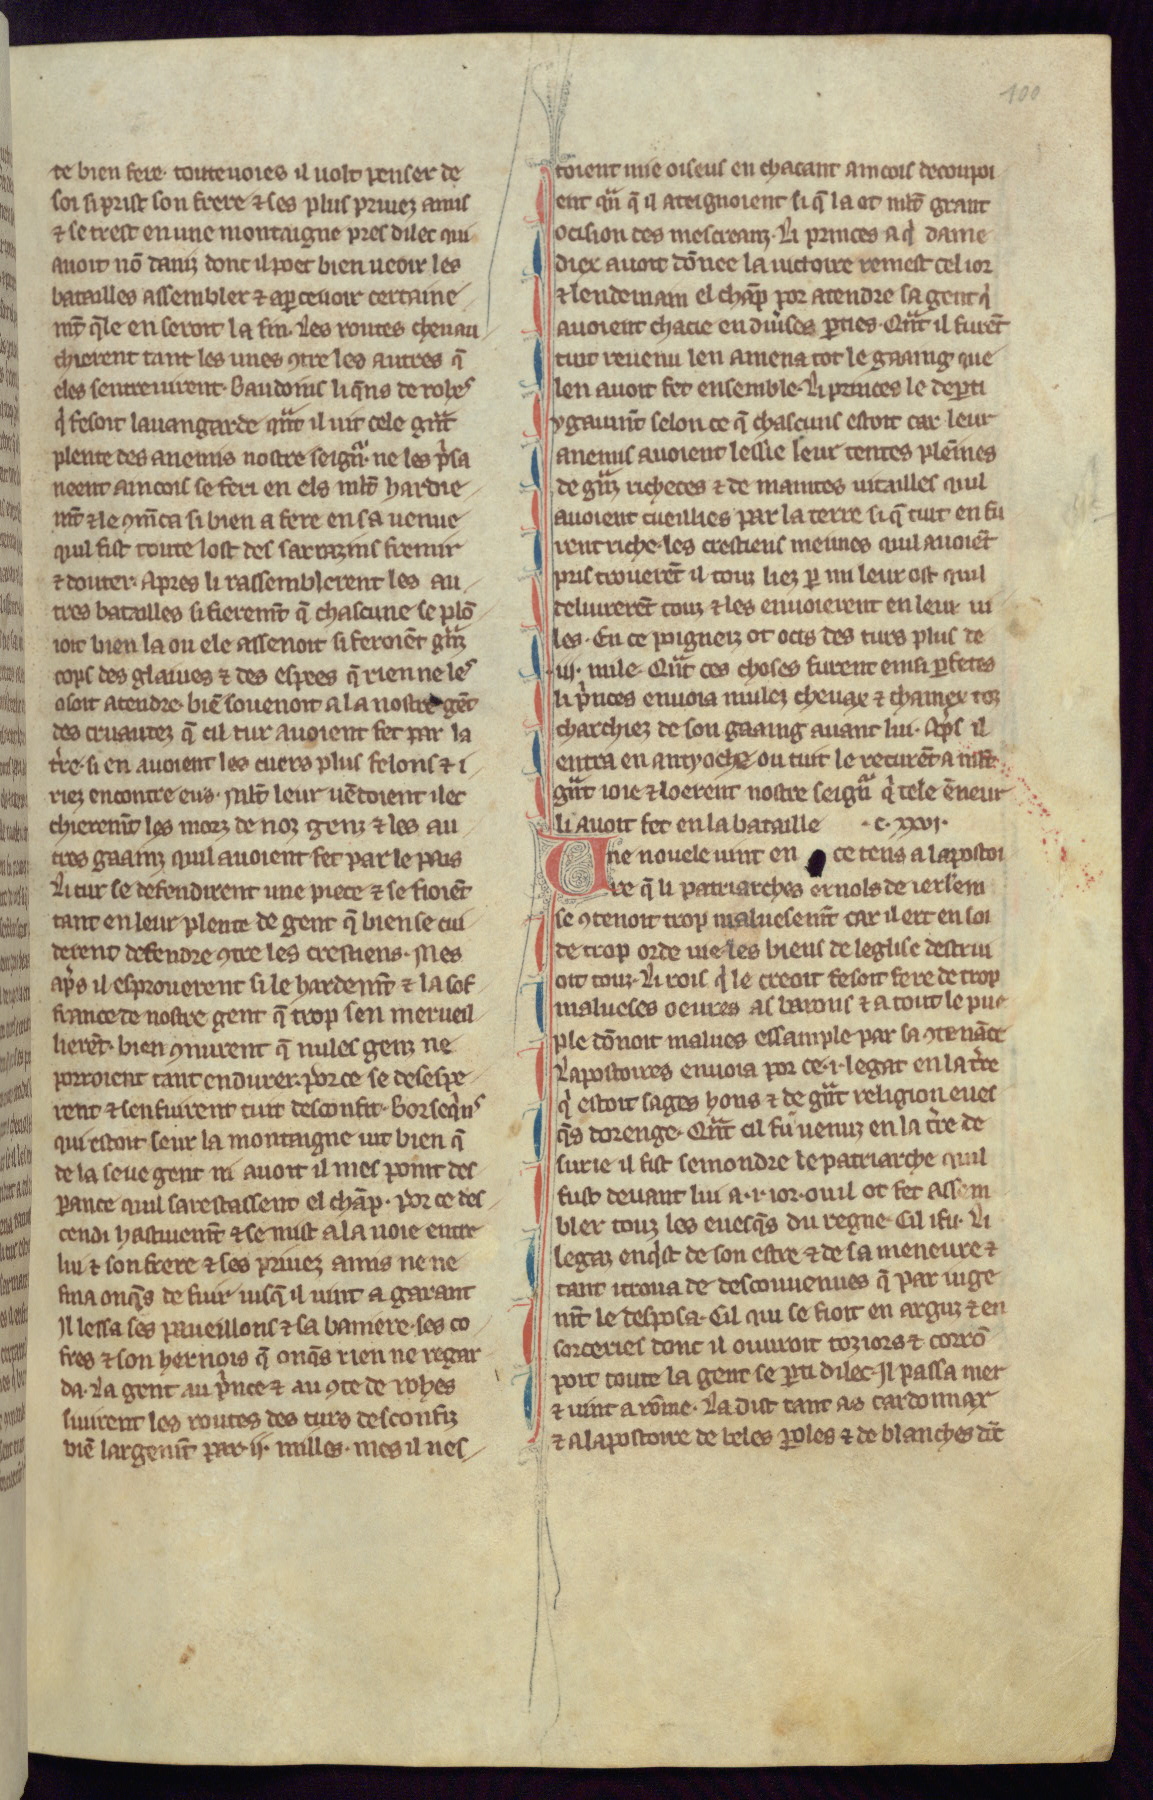 100
te bien fere. toutevoies il volt penser de
soi si prist son frere ⁊ ses plus privez amis
⁊ se trest en une montaigne pres dilec qui
avoit nō daniz dont il poet bien veoir les
batailles assembler ⁊ aꝑcevoir certaine
mt̄ q̄le en seroit la fin. Les routes chevau
chierent tant les unes ꝯtre les autres q̄
eles sentrevirent. Baudoins li q̄ns de rohes
q̇ fesoit lavangarde qᵃnt il vit cele gᵃnt
plente des anemis nostre seignᵣ. ne les p̓sa
neent aincois se feri en els ml̄t hardie
mt̄ ⁊ le ꝯmēca si bien a fere en sa venue
quil fist toute lost des sarrazins fremir
⁊ douter. Apres li rassemblerent les au
tres batailles si fieremt̄ q̄ chascune se plō
ioit bien la ou ele assenoit si feroiēt gᵃnz
cops des glaives ⁊ des espees q̄ rien ne les
osoit atendre. biē sovenoit a la nostre gēt
des cruautez q̄ cil tur avoient fet par la
tr̓e. si en avoient les cuers plus felons ⁊ i
riez encontre eus. Ml̄t leur vēdoient ilec
chieremt̄ les morz de noz genz ⁊ les au
tres gaainz quil avoient fet par le pais
Li tur se defendirent une piece ⁊ se fioiēt
tant en leur plente de gent q̄ bien se cui
derent defendre ꝯtre les crestiens. Mes
ap̓s il esproverent si le hardemt̄ ⁊ la sof
france de nostre gent q̄ trop sen merveil
lierēt. bien ꝯnurent q̄ nules genz ne
porroient tant endurer. por ce se desespe
rent ⁊ senfuirent tuit desconfit. Borseq̇ns
qui estoit seur la montaigne vit bien q̄
de la seue gent ni avoit il mes point des
ꝑance quil sarestassent el chāp. por ce des
cendi hastivemt̄ ⁊ se mist a la voie entre
lui ⁊ son frere ⁊ ses privez amis ne ne
fina onq̄s de fuir iusq̄ il vint a garant
Il lessa ses paveillons ⁊ sa baniere. ses co
fres ⁊ son hernois q̄ onq̄s rien ne regar
da. La gent au p̓nce ⁊ au ꝯte de rohes
sivirent les routes des turs desconfiz
biē largemt̄ par .ii. milles. mes il nes
toient mie oiseus en chacant aincois decoupoi
ent qᵃn q̄ il ateignoient si q̄ la ot ml̄t grant
ocision des mescreanz. Li princes a q̇ dame
diex avoit dōnee la victoire remest cel ior
⁊ lendemain el chāp por atendre sa gent q̇
avoient chacie en div̓ses ꝑties. Qᵃnt il furēt
tuit revenu len amena tot le gaaing que
len avoit fet ensemble. Li princes le deꝑti
ygaumt̄ selon ce q̄ chascuns estoit car leur
anemis avoient lessie leur tentes pleines
de gᵃnz richeces ⁊ de maintes vitailles quil
avoient cueillies par la terre si q̄ tuit en fu
rent riche. les crestiens meimes quil avoiēt
pris troverēt il touz liez ꝑ mi leur ost quil
delivrerēt touz ⁊ les envoierent en leur vi
les. En ce poigneiz ot ocis des turs plus de
.iij. mile. Qᵃnt ces choses furent einsi ꝑfetes
li p̓nces envoia mulez chevax ⁊ chamex toz
charchiez de son gaaing avant lui. Ap̓s il
entra en antyoche ou tuit le recurēt a ml̄t
gᵃnt ioie ⁊ loerent nostre seignᵣ q̇ tele ēneur
li avoit fet en la bataille .c. xxvi.
Une novele vint en ce tens a lapostoi
re q̄ li patriarches ernols de ierl̄em
se ꝯtenoit trop malvesemt̄ car il ert en soi
de trop orde vie. les biens de leglise destrui
oit touz. Li rois q̇ le creoit fesoit fere de trop
malveses oeures as barons ⁊ a tout le pue
ple dōnoit malves essample par sa ꝯtenāce
Lapostoires envoia por ce .i. legat en la tr̓e
q̇ estoit sages hons ⁊ de gᵃnt religion eves
q̄s dorenge. Qᵃnt cil fu venuz en la tr̓e de
surie il fist semondre le patriarche quil
fust devant lui a .i. ior. ou il ot fet assem
bler touz les evesq̄s du regne. Cil i fu. Li
legaz enq̇st de son estre ⁊ de sa meneure ⁊
tant i trova de descouvenues q̄ par iuge
mt̄ le desposa. Cil qui se fioit en arguz ⁊ en
sorceries dont il ouvroit toz iors ⁊ corrō
poit toute la gent se ꝑti dilec. Il passa mer
⁊ vint a rōme. La dist tant as cardonnax
⁊ a lapostoire de beles ꝑoles ⁊ de blanches dit̄